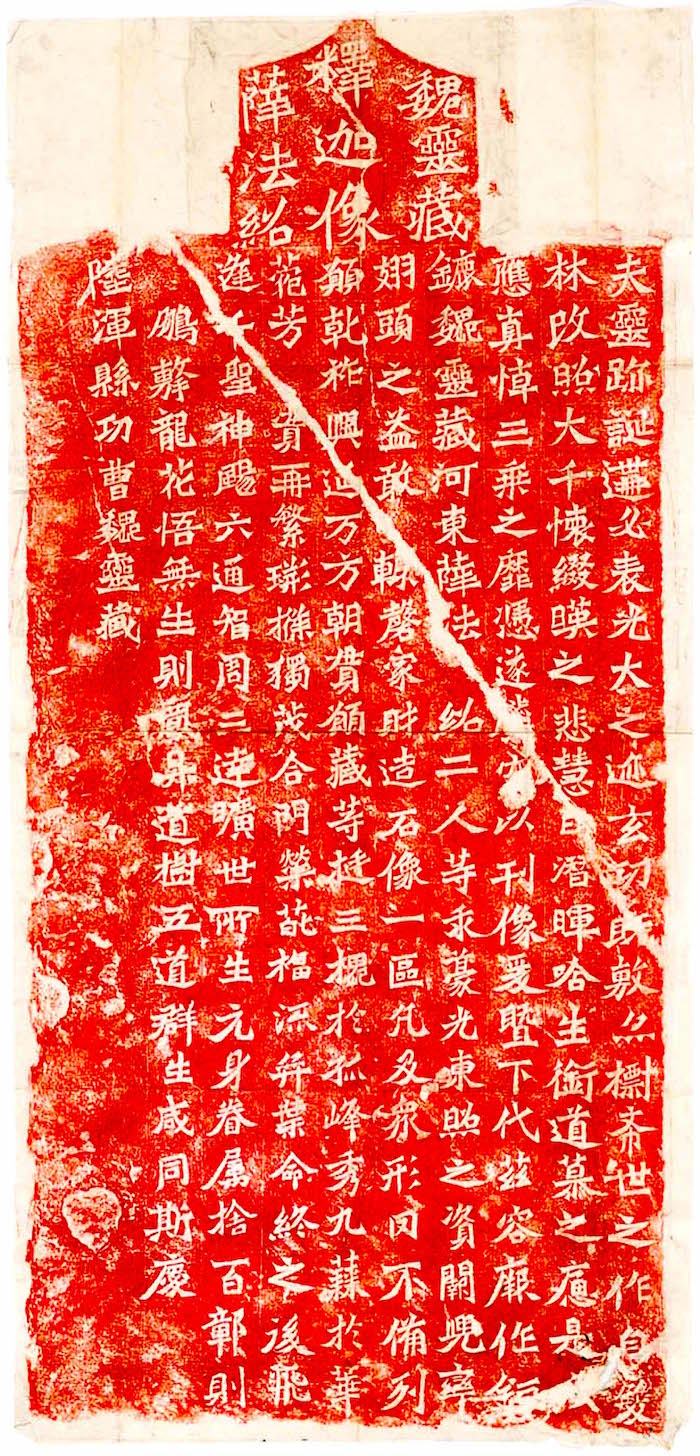 魏靈藏
釋迦像
薛法紹
夫靈跡誕遘必表光大之迹玄功既敷亦標希世之作自雙
林改照大千懷綴暎之悲慧日潛暉哈生銜道慕之痛是以
應真悼三乘之靡憑遂騰空以刊像爰暨下代茲容厥作鉅
鏕魏靈藏河東薛法紹二人等求豪光東照之資闕兜率
翅頭之益敢輒磬家財造石像一區凡及眾形罔不備列
願乾祚興延万方朝貫願藏等挺三槐於孤峰秀九蕀於華
菀芳實再繁荊條獨茂合門榮葩福流弈葉命終之後飛
逢千聖神颺六通智周三達曠世所生元身眷屬捨百鄣則
鵬擊龍花悟無生則鳳昇道樹五道群生咸同斯慶
陸渾縣功曹魏靈藏